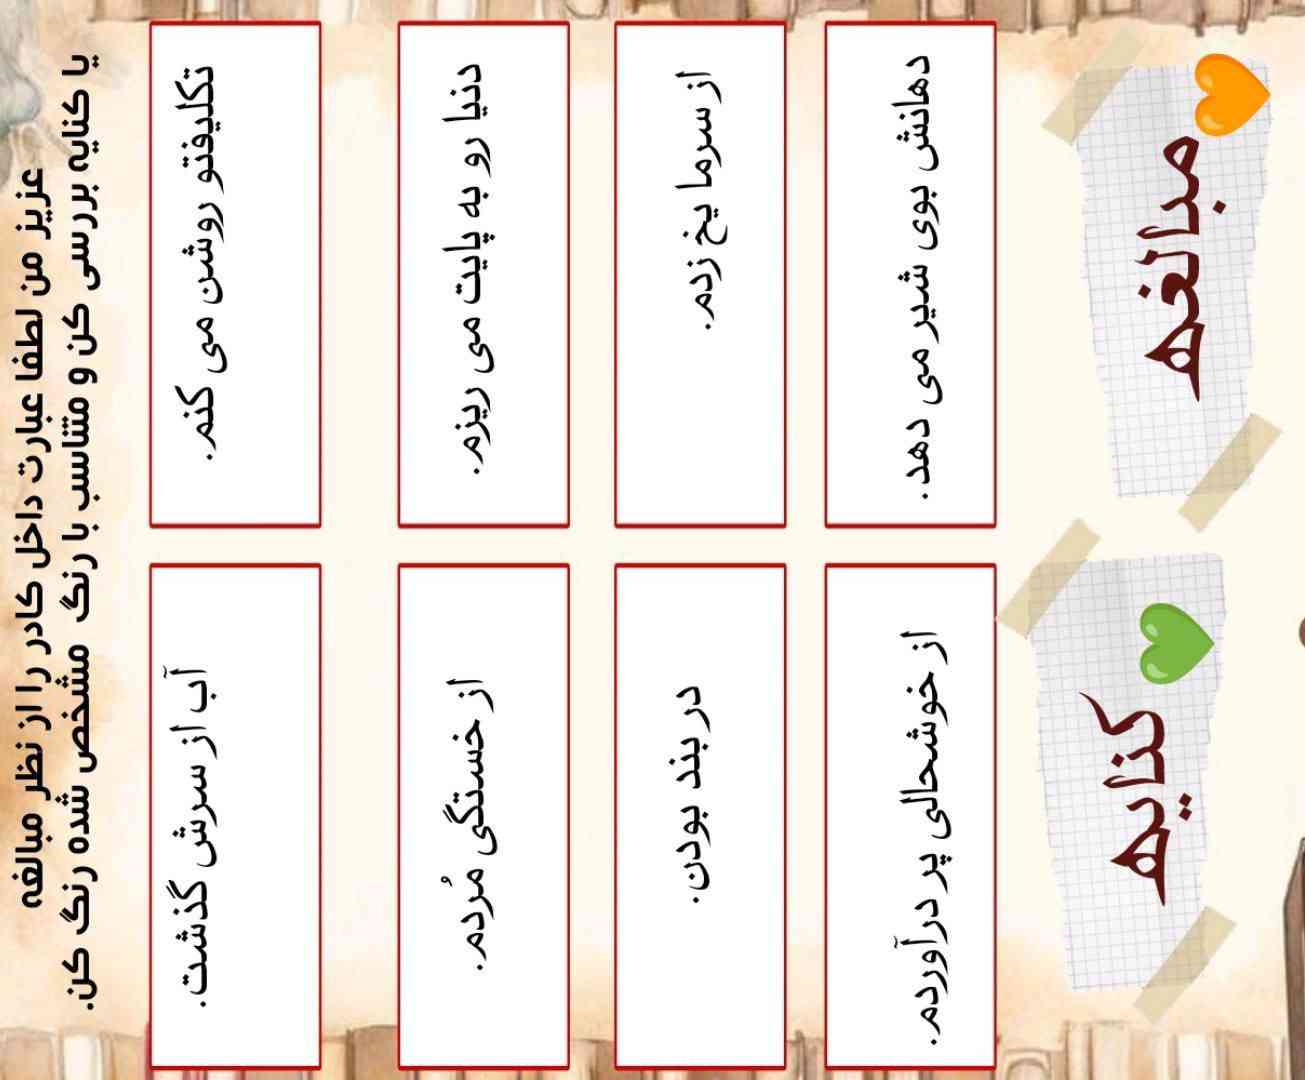 عزیز من لطفا عبارت داخل کادر را از نظر مبالغه
یا کنایه بررسی کن و متناسب با رنگ مشخص شده رنگ کن.
تکلیفتو روشن می کنم.
آب از سرش گذشت.
دنیا رو به پایت می ریزم.
از خستگی مُردم.
از سرما یخ زدم.
در بند بودن.
دهانش بوی شیر می دهد.
از خوشحالی پر درآوردم.
مبالغه
کنایه